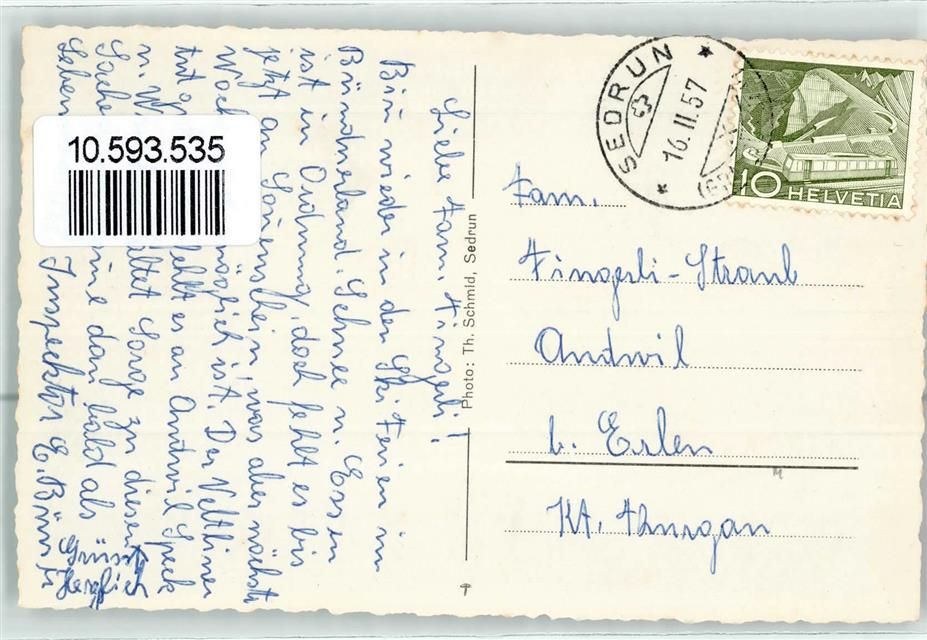 Liebe Fam. Fingerli!
Bin wieder in den Ski Ferien im
Bündnerland. Schnee u. Essen
ist in Ordnung, doch fehlt es bis
jetzt an Sonnenschein was aber nächste
Woche möglich ist. Der Veltliner
tut fehlt es an Andwil Speck
u. W altet Sorge zu diesen
Sache ine dan bald als
Leben Inspektor E.
Grüsst
Herzlich
Photo: Th. Schmid, Sedrun
10.593.535
SEDRUN
16.II.57
10 HELVETIA
Fam.
Fingerli-Straub
Andwil
b. Erlen
Kt. Thurgau